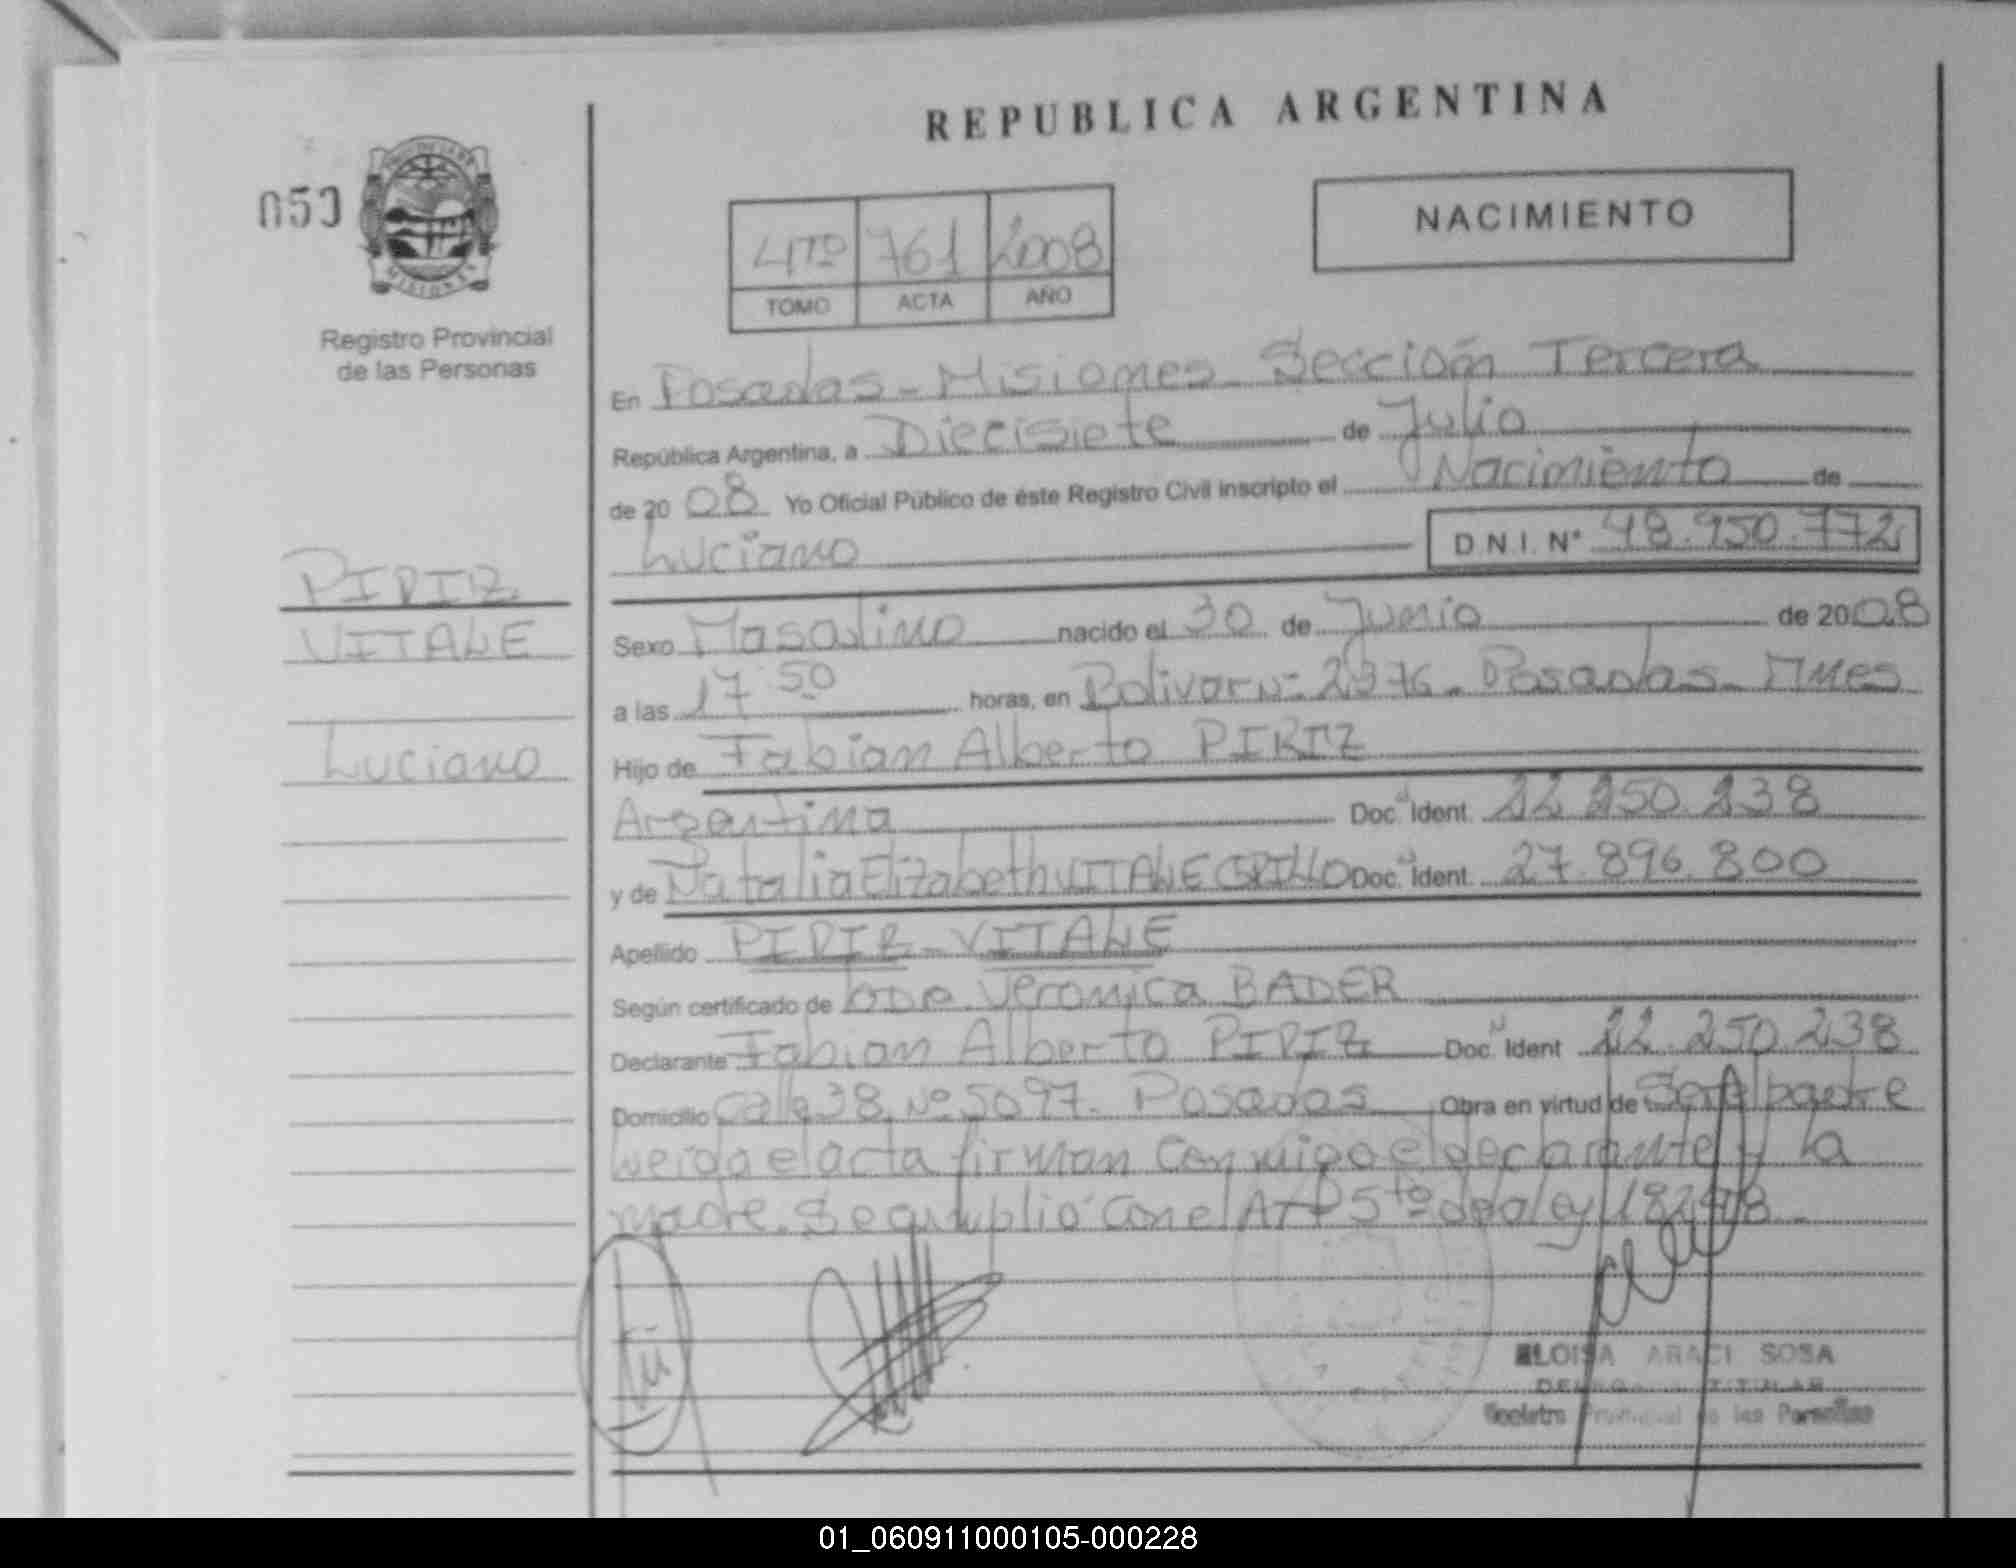 REPUBLICA ARGENTINA
050
PROVINCIA DE
MISIONES
Registro Provincial
de las Personas
4TO 761 2008
TOMO ACTA AÑO
NACIMIENTO
En Posadas - Misiones - Sección Tercera
República Argentina, a Diecisiete de Julio
de 20 08 Yo Oficial Público de éste Registro Civil inscripto el Nacimiento de
Luciano D.N.I. N° 48.950.772
PIRIZ
VITALE
Luciano
Sexo Masculino nacido el 30 de Junio de 2008
a las 17 50 horas, en Bolivar Nº 2376 - Posadas - Mnes
Hijo de Fabian Alberto PIRIZ
Argentina Doc. Ident. 22.250.238
y de Natalia Elizabeth VITALE Doc. Ident. 27.896.800
Apellido PIRIZ - VITALE
Según certificado de Veronica BADER
Declarante Fabian Alberto PIRIZ Doc. Ident 22.250.238
Domicilio Calle 38 Nº 5097 - Posadas Obra en virtud de Ser el padre
Leida el acta firman conmigo el declarante y la
madre. Se cumplio con el Art 5to de la ley 18248 -
ELOISA ARACI SOSA
DELEGADA TITULAR
Registro Provincial de las Personas
01_060911000105-000228